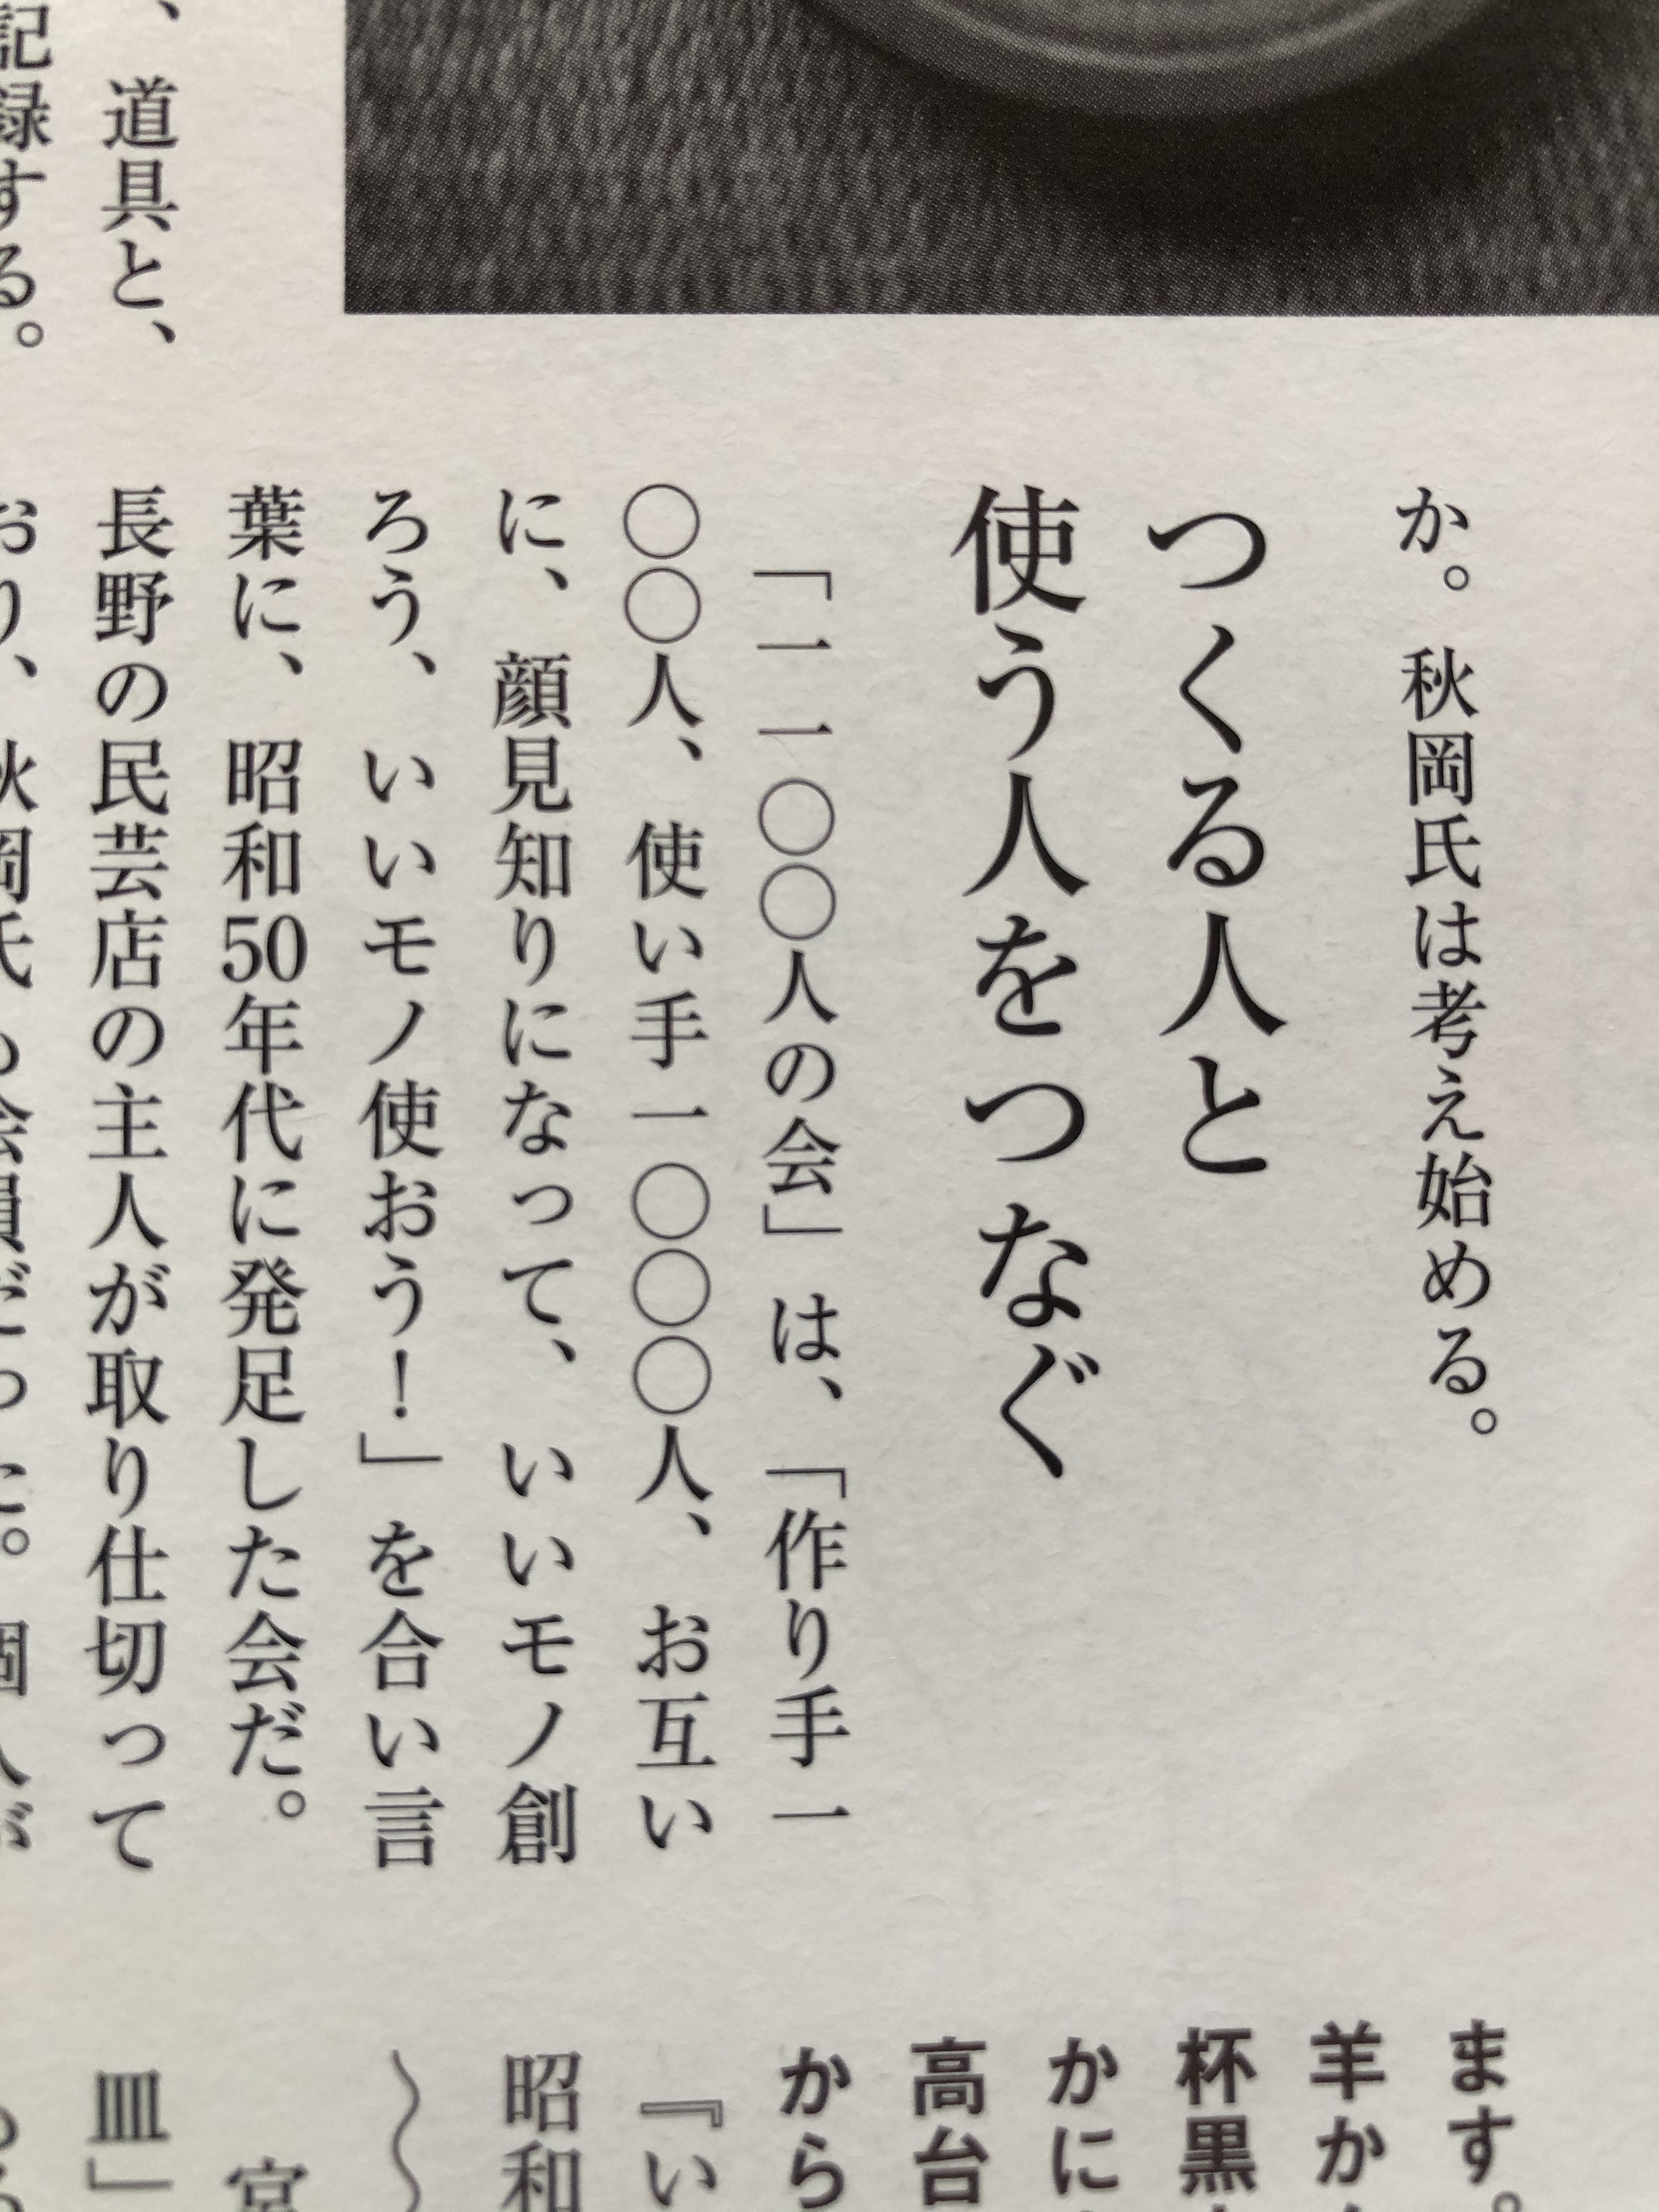 、道具と、
記録する。
か。秋岡氏は考え始める。
つくる人と
使う人をつなぐ
「一一〇〇人の会」は、「作り手一
〇〇人、使い手一〇〇〇人、お互い
に、顔見知りになって、いいモノ創
ろう、いいモノ使おう！」を合い言
葉に、昭和50年代に発足した会だ。
長野の民芸店の主人が取り仕切って
おり、秋岡氏も会員だった。個人が
ます。
羊か
杯黒
かに
高台
から
『い
昭和
〜
宮
皿」